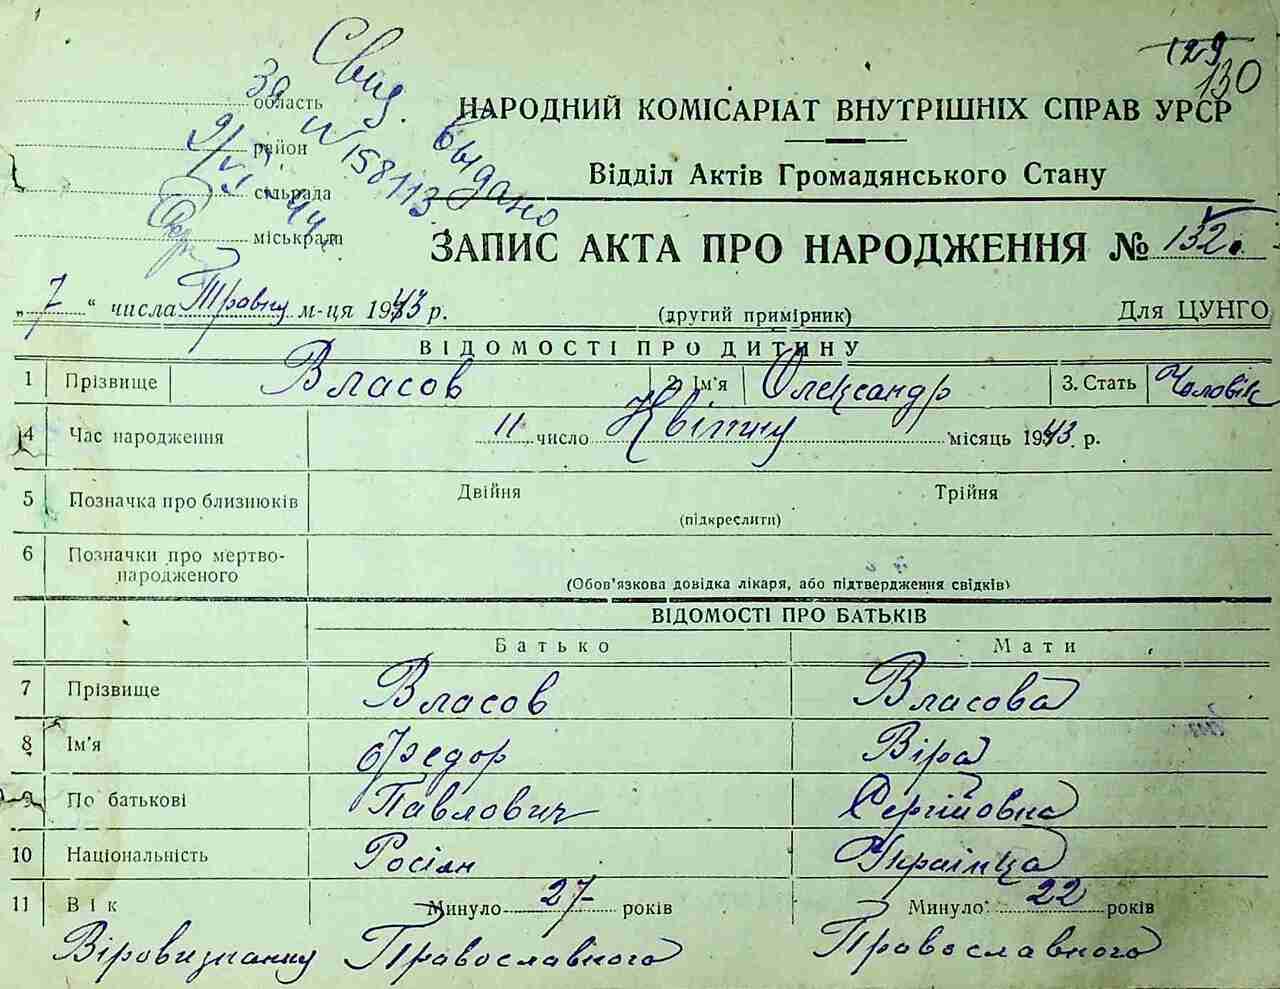 129
130
Свид. выдано
За № 158113
9/VI 44
область
район
сільрада
міськрада
НАРОДНИЙ КОМІСАРІАТ ВНУТРІШНІХ СПРАВ УРСР
Відділ Актів Громадянського Стану
ЗАПИС АКТА ПРО НАРОДЖЕННЯ № 132
„ 7 “ числа Травну м-ця 1943 р.
(другий примірник)
Для ЦУНГО
ВІДОМОСТІ ПРО ДИТИНУ
1 Прізвище Власов 2. Ім'я Олександр 3. Стать Чоловік
4 Час народження 11 число Квітну місяць 1943 р.
5 Позначка про близнюків Двійня Трійня
(підкреслити)
6 Позначки про мертво-
народженого
(Обов'язкова довідка лікаря, або підтвердження свідків)
ВІДОМОСТІ ПРО БАТЬКІВ
Батько Мати
7 Прізвище Власов Власова
8 Ім'я Федор Віра
9 По батькові Павлович Сергійовна
10 Національність Росіян Українка
11 Вік Минуло 27 років Минуло 22 років
Віровизнанну Православного Православного